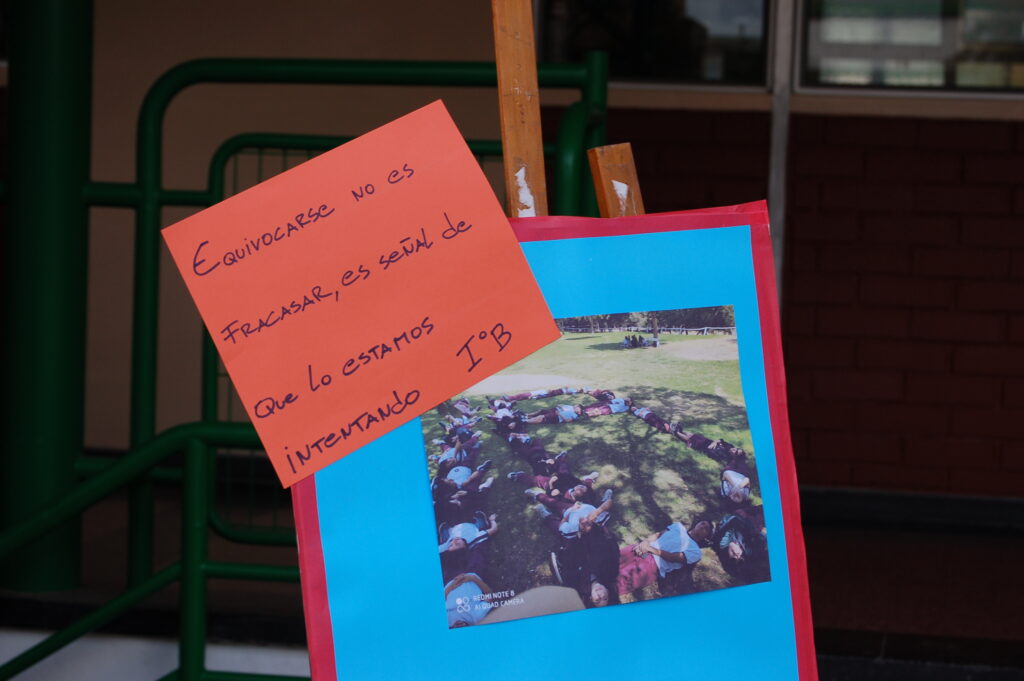 Equivocarse no es
fracasar, es señal de
que lo estamos
intentando I°B
REDMI NOTE 8
AI QUAD CAMERA